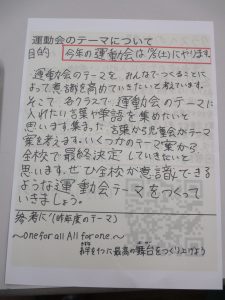 運動会のテーマについて
目的 今年の運動会は (土)にやります。
運動会のテーマを みんなでつくることに
よって意識を高めていきたいと考えています。
そこで 各クラスで 運動会のテーマに
入れたい言葉や単語を集めたいと
思います。集まった 言葉から児童会がテーマ
案を考えます。いくつかのテーマ案から
全校で最終決定していきたいと
思います。ぜひ全校が意識できる
ような運動会テーマをつくって
いきましょう。
参考に(昨年度のテーマ)
〜one for all All for one〜
を1つに 最高の舞台をつくり上げよう